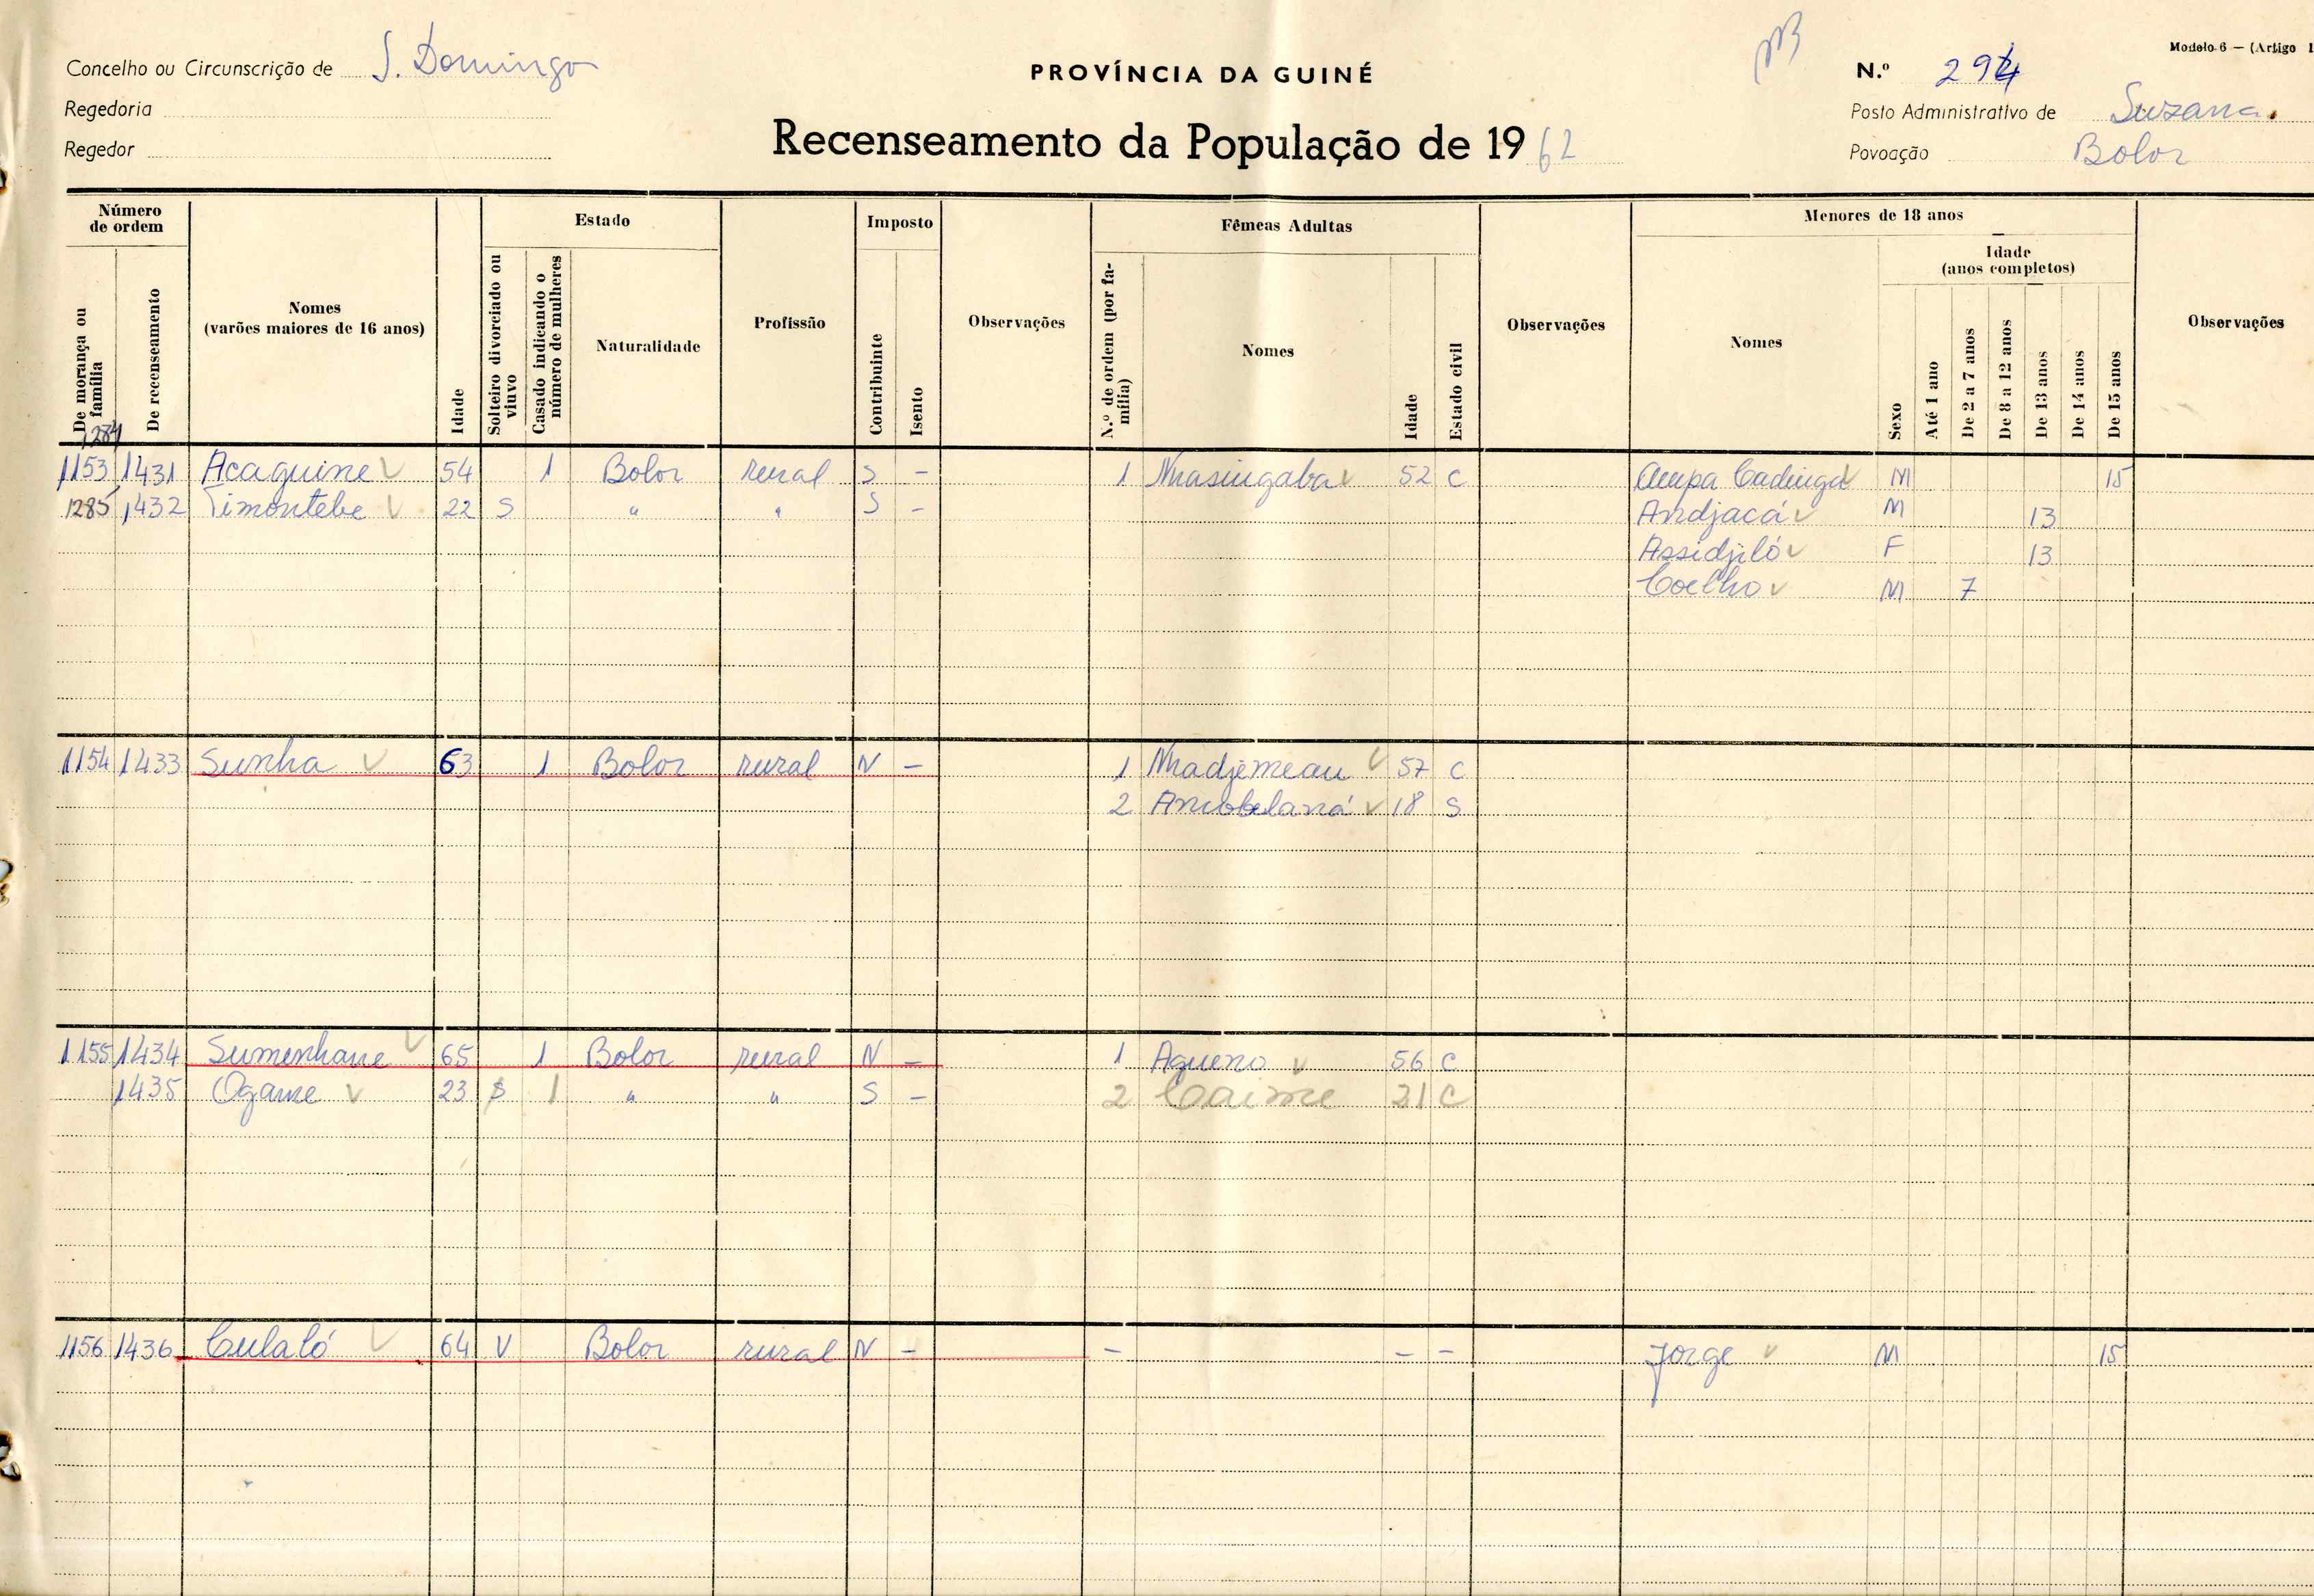 Modelo 6 — (Artigo 1
Concelho ou Circunscrição de S. Domingo
PROVÍNCIA DA GUINÉ
N.º 294
Regedoria
Posto Administrativo de Suzana.
Regedor
Recenseamento da População de 1962
Povoação Bolor
Número de ordem
De morança ou família
De recenseamento
Nomes (varões maiores de 16 anos)
Idade
Estado
Solteiro divorciado ou viuvo
Casado indicando o número de mulheres
Naturalidade
Profissão
Imposto
Contribuinte
Isento
Observações
Fêmeas Adultas
N.º de ordem (por família)
Nomes
Idade
Estado civil
Observações
Menores de 18 anos
Nomes
Sexo
Idade (anos completos)
Até 1 ano
De 2 a 7 anos
De 8 a 12 anos
De 13 anos
De 14 anos
De 15 anos
Observações
1284
1153 1431 Acaguine 54 1 Bolor rural S — 1 Nhasingaba 52 C Ampa Cadinga M 15
1285 1432 Timontebe 22 S " " S — Andjacá M 13
Assidjiló F 13
Coelho M 7
1154 1433 Sunha 63 1 Bolor rural N — 1 Nhadjemeau 57 C
2 18 S
1155 1434 Sumenhane 65 1 Bolor rural N — 1 Agueno 56 C
1435 Ogame 23 S 1 " " S — 2 Caime 21 C
1156 1436 Culaló 64 V Bolor rural N — — — — Jorge M 15